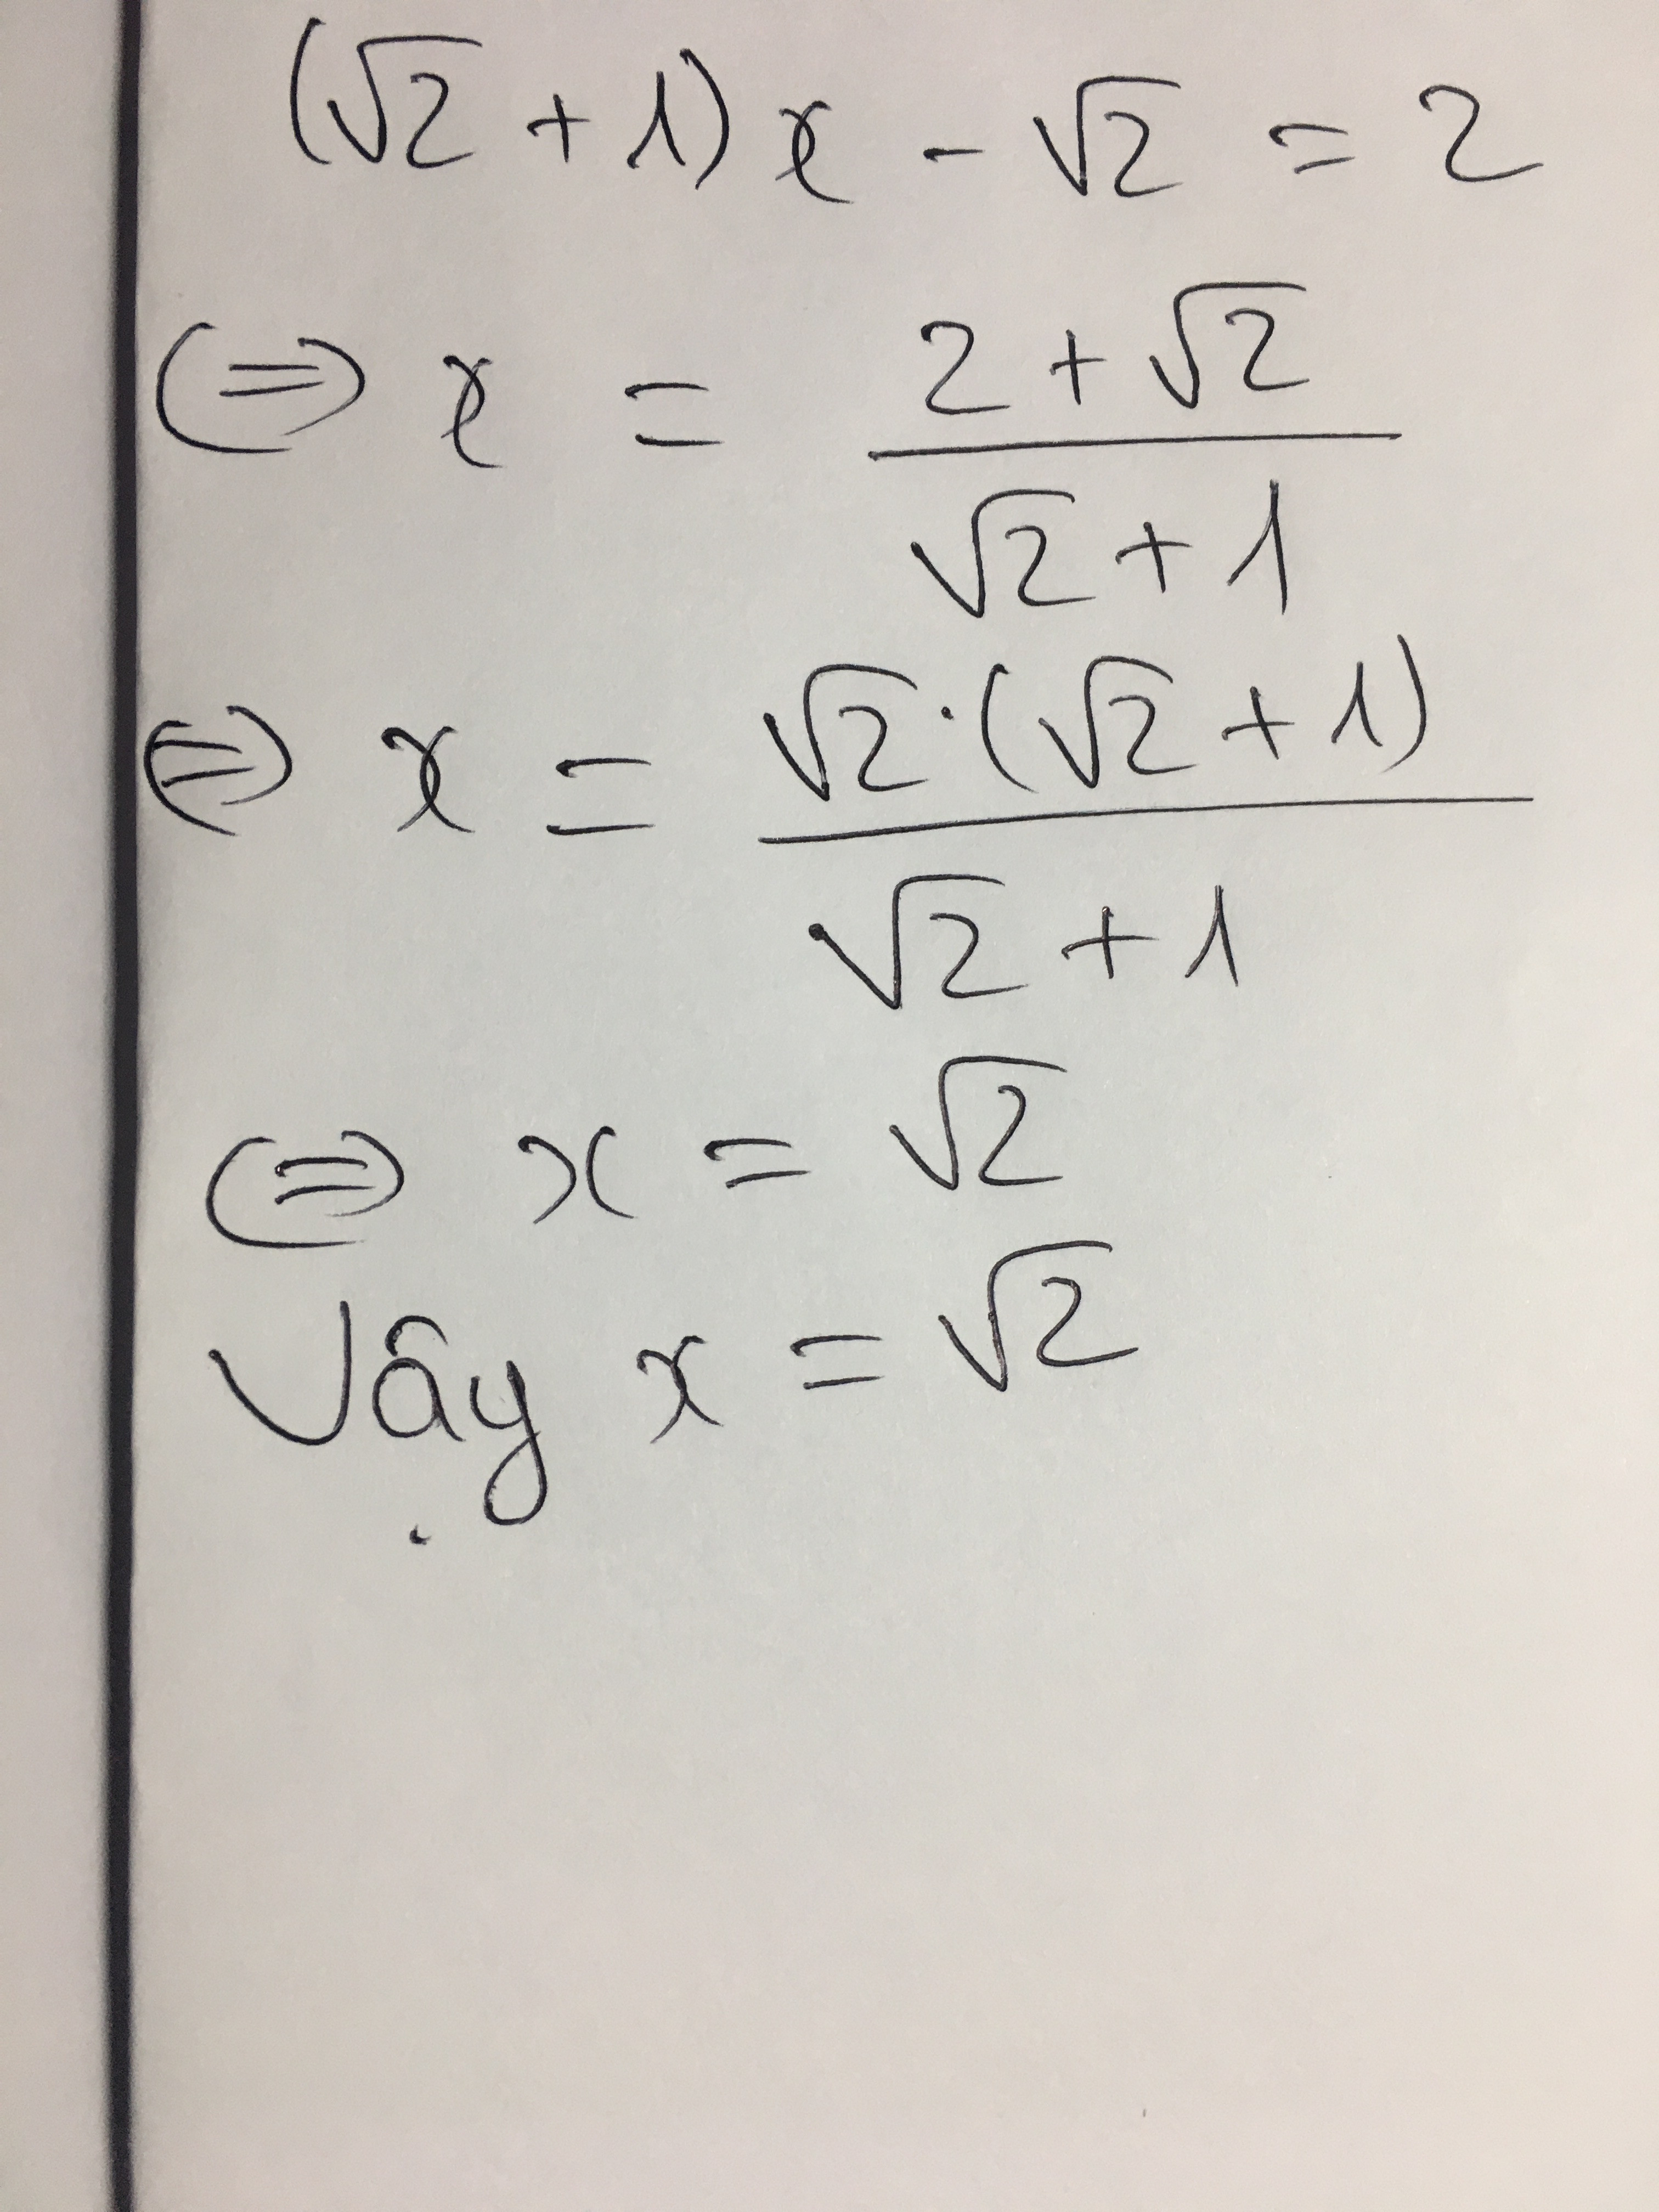 (√2 + 1) x - √2 = 2
⇔ x = (2 + √2) / (√2 + 1)
⇔ x = (√2 · (√2 + 1)) / (√2 + 1)
⇔ x = √2
Vậy x = √2